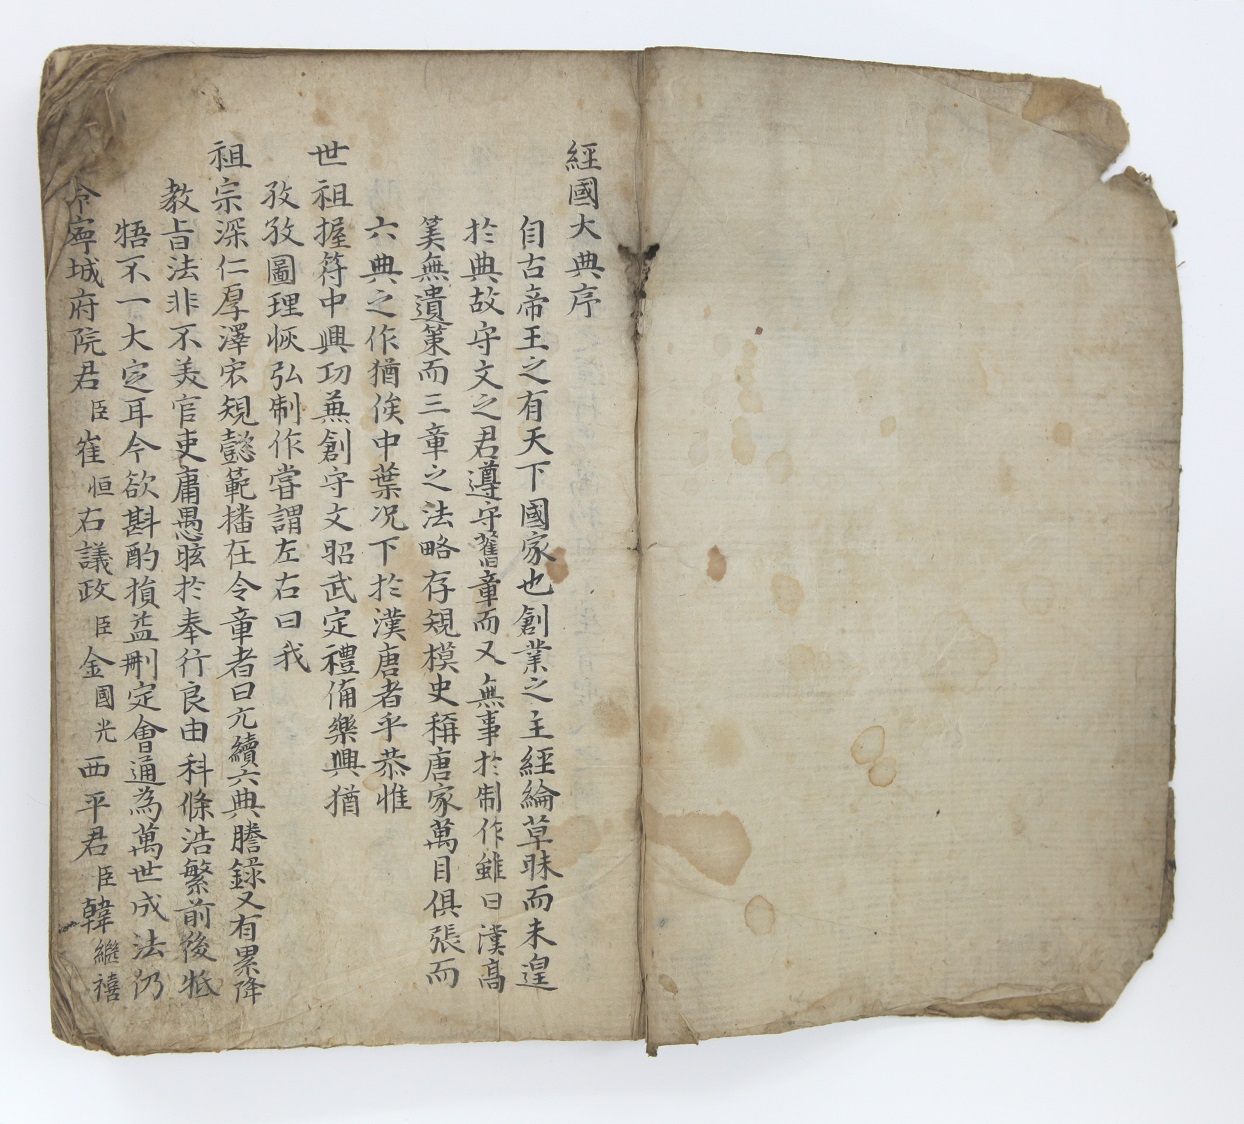 經國大典序
自古帝王之有天下國家也創業之主經綸草昧而未遑
於典故守文之君遵守舊章而又無事於制作雖曰漢高
筭無遺策而三章之法略存規模史稱唐家萬目俱張而
六典之作猶俟中葉况下於漢唐者乎恭惟
世祖握符中興功兼創守文昭武定禮備樂興猶
孜孜圖理恢弘制作嘗謂左右曰我
祖宗深仁厚澤宏規懿範播在令章者曰元續六典謄錄又有累降
教旨法非不美官吏庸愚眩於奉行良由科條浩繁前後牴
牾不一大定耳今欲斟酌損益刪定會通為萬世成法仍
令寧城府院君臣崔恒右議政臣金國光西平君臣韓繼禧